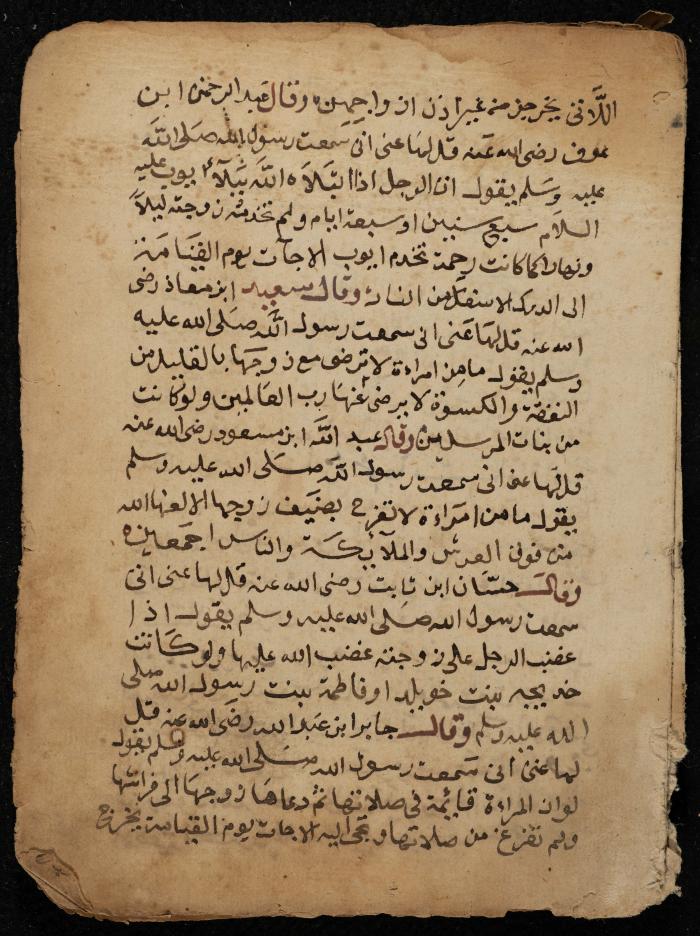 اللآتى يخرجن من غير اذن ازواجهن وقال عبد الرحمن ابن
عوف رضى الله عنه قل لها عنى انى سمعت رسول الله صلى الله
عليه وسلم يقول ان الرجل اذا ابتلاه الله ببلآء ايوب عليه
السلام سبع سنين او سبعة ايام ولم تخدمه زوجته ليلاً
ونهارا كما كانت رحمة تخدم ايوب الا جآت يوم القيامة
الى الدرك الاسفل من النار وقال سعيد ابن معاذ رضى
الله عنه قل لها عنى انى سمعت رسول الله صلى الله عليه
وسلم يقول ما من امراءة لا ترضى مع زوجها بالقليل من
النفقة والكسوة لا يرضى عنها رب العالمين ولو كانت
من بنات المرسلين وقال عبد الله ابن مسعود رضى الله عنه
قل لها عنى انى سمعت رسول الله صلى الله عليه وسلم
يقول ما من امراءة لا تفرح بضيف زوجها الا لعنها الله
من فوق العرش والملآيكة والناس اجمعين
وقال حسّان ابن ثابت رضى الله عنه قل لها عنى انى
سمعت رسول الله صلى الله عليه وسلم يقول اذا
غضب الرجل على زوجته غضب الله عليها ولو كانت
خديجه بنت خويلد او فاطمة بنت رسول الله صلى
الله عليه وسلم وقال جابر ابن عبد الله رضى الله عنه قل
لها عنى انى سمعت رسول الله صلى الله عليه وسلم يقول
لو ان المراءة قايمة فى صلاتها ثم دعاها زوجها الى فراشها
ولم تفرغ من صلاتها وتجى اليه الا جآت يوم القيامة يخرج